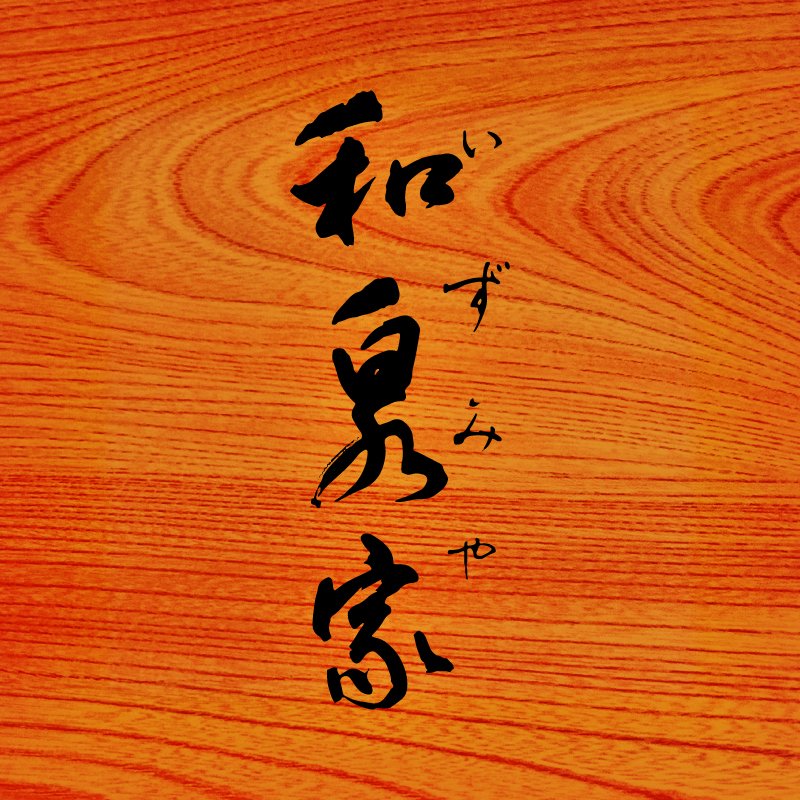 和泉家
いずみや